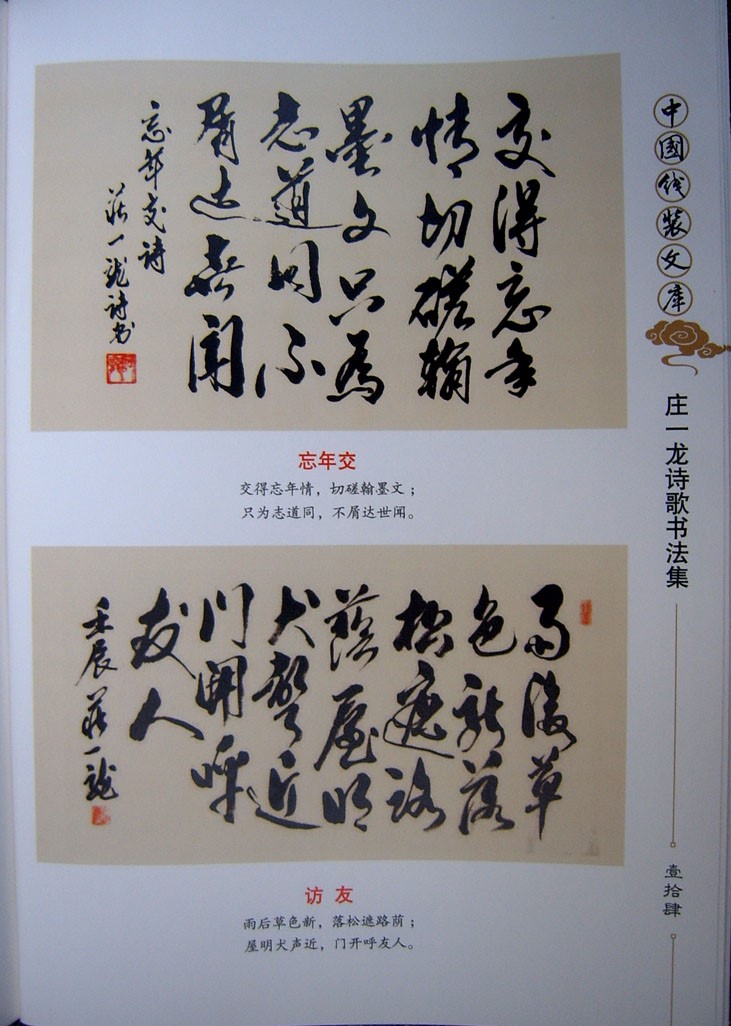 交得忘年
情切磋翰
墨文只為
志道同不
屑达世聞
忘年交诗
莊一龍诗书
忘年交
交得忘年情，切磋翰墨文；
只为志道同，不屑达世闻。
雨後草
色新落
松遮路
蔭屋明
犬聲近
門開呼
友人
壬辰莊一龍
访友
雨后草色新，落松遮路荫；
屋明犬声近，门开呼友人。
中國线装文库
庄一龙诗歌书法集
壹拾肆